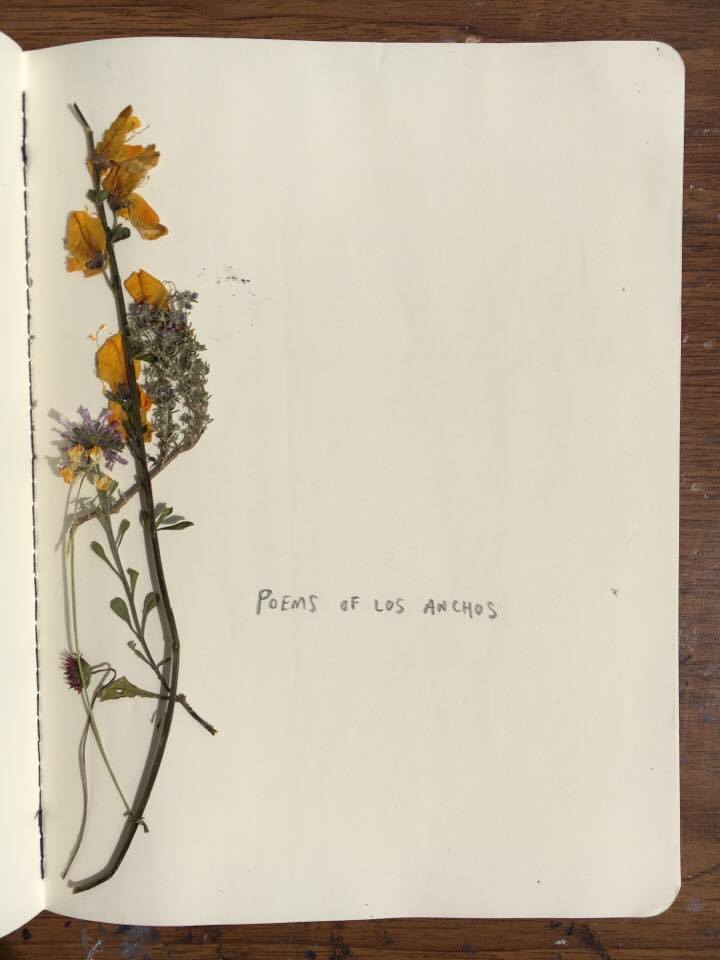 POEMS OF LOS ANCHOS